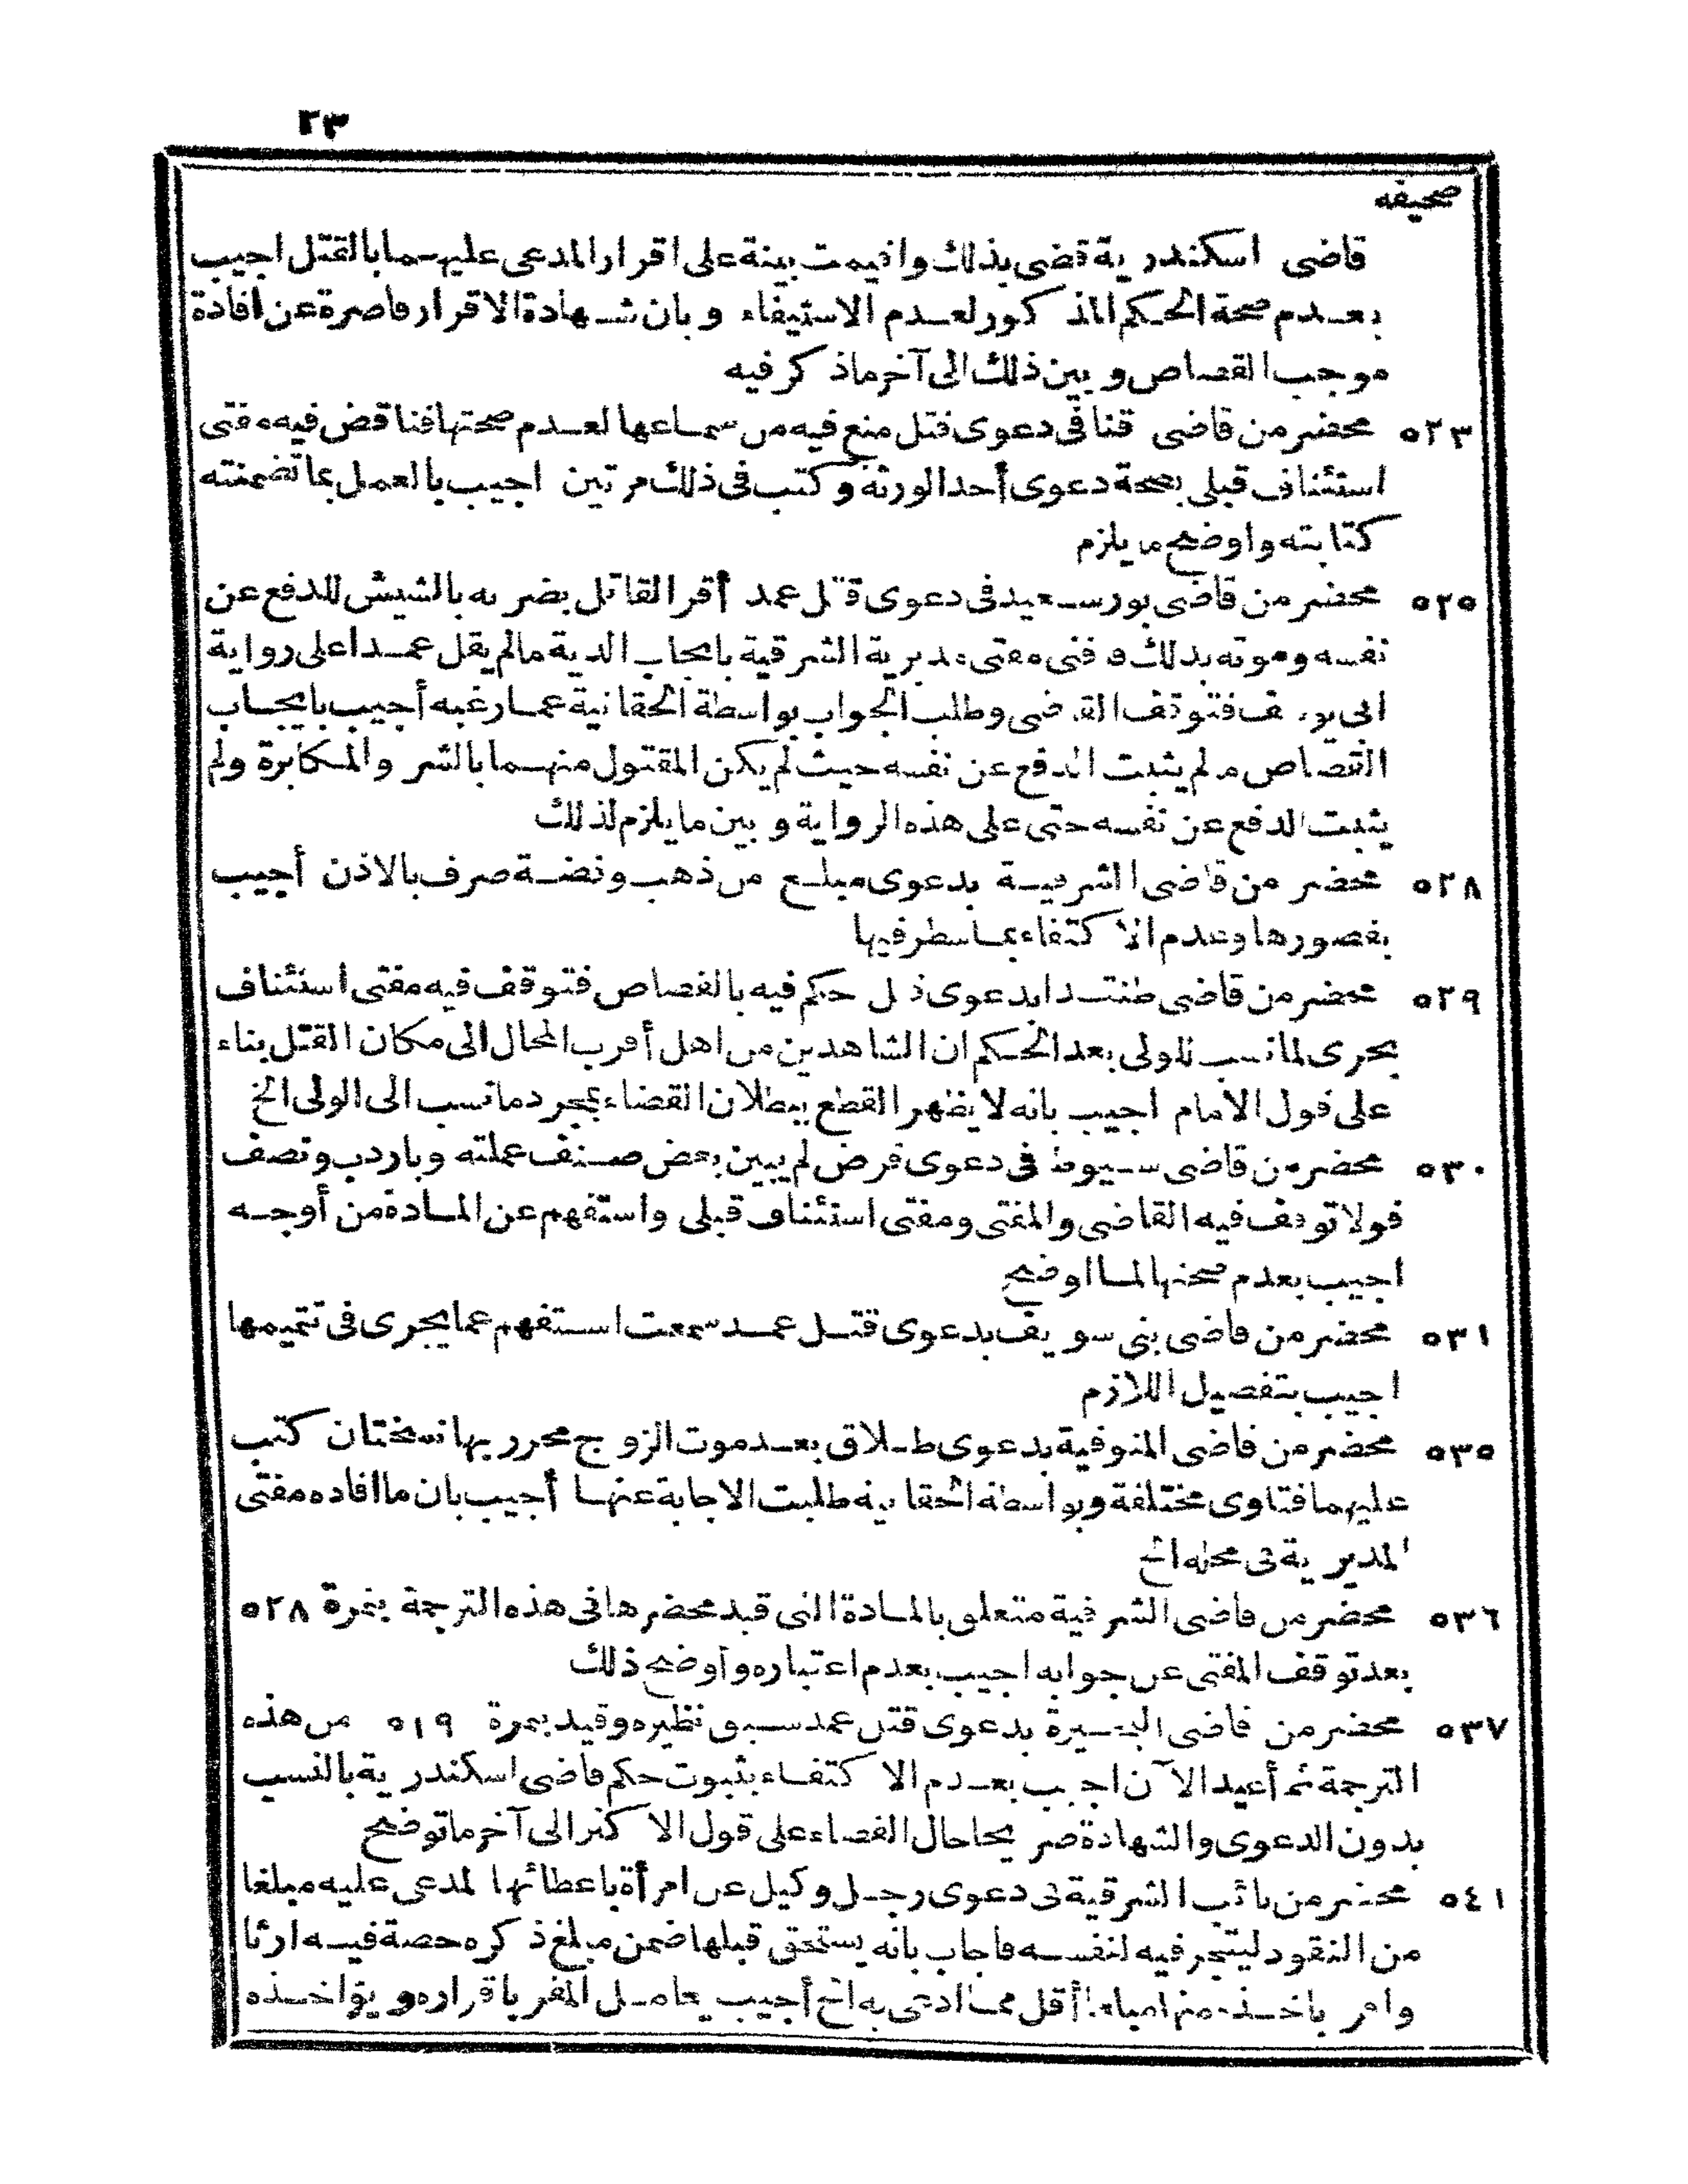 ٢٣
صحيفه
قاضى اسكندرية قضى بذلك واقيمت بينة على اقرار المدعى عليهما بالقتل اجيب
بعدم صحة الحكم المذكور لعدم الاستيفاء وبان شهادة الاقرار قاصرة عن افادة
موجب القصاص وبين ذلك الى آخر ماذكر فيه
٥٢٣ محضر من قاضى قنا فى دعوى قتل منع فيه من سماعها لعدم صحتها فناقض فيه مفتى
استئناف قبلى بصحة دعوى أحد الورثة وكتب فى ذلك مرتين اجيب بالعمل بما تضمنته
كتابته واوضح ما يلزم
٥٢٥ محضر من قاضى بورسعيد فى دعوى قتل عمد أقر القاتل بضربه بالشيش للدفع عن
نفسه وموته بذلك فافتى مفتى مديرية الشرقية بايجاب الدية مالم يقل عمدا على رواية
ابى يوسف فتوقف القاضى وطلب الجواب بواسطة الحقانية عمارغبه أجيب بايجاب
القصاص ما لم يثبت الدفع عن نفسه حيث لم يكن المقتول منهما بالشر والمكابرة ولم
يثبت الدفع عن نفسه حتى على هذه الرواية وبين ما يلزم لذلك
٥٢٨ محضر من قاضى الشرقية بدعوى مبلغ من ذهب وفضة صرف بالاذن أجيب
بقصورها وعدم الاكتفاء بما سطر فيها
٥٢٩ محضر من قاضى طنتدا بدعوى قتل حكم فيه بالقصاص فتوقف فيه مفتى استئناف
بحرى لما نسب للولى بعد الحكم ان الشاهدين من اهل أقرب المحال الى مكان القتل بناء
على قول الامام اجيب بانه لا يظهر القطع ببطلان القضاء بمجرد ما نسب الى الولى الخ
٥٣٠ محضر من قاضى سيوط فى دعوى قرض لم يبين بعض صنف عملته وباردب ونصف
فولا توقف فيه القاضى والمفتى ومفتى استئناف قبلى واستفهم عن المادة من أوجه
اجيب بعدم صحتها لما اوضح
٥٣١ محضر من قاضى بنى سويف بدعوى قتل عمد سمعت استفهم عما يجرى فى تتميمها
اجيب بتفصيل اللازم
٥٣٥ محضر من قاضى المنوفية بدعوى طلاق بعد موت الزوج محرر بها نسختان كتب
عليهما فتاوى مختلفة وبواسطة الحقانية طلبت الاجابة عنها أجيب بان ما افاده مفتى
المديرية فى محله الخ
٥٣٦ محضر من قاضى الشرقية متعلق بالمادة التى قيد محضرها فى هذه الترجمة بنمرة ٥٢٨
بعد توقف المفتى عن جوابه اجيب بعدم اعتباره وأوضح ذلك
٥٣٧ محضر من قاضى البحيرة بدعوى قتل عمد سبق نظيره وقيد بنمرة ٥١٩ من هذه
الترجمة ثم أعيد الآن اجيب بعدم الاكتفاء بثبوت حكم قاضى اسكندرية بالنسب
بدون الدعوى والشهادة صريحا حال القضاء على قول الاكثر الى آخر ما توضح
٥٤١ محضر من نائب الشرقية فى دعوى رجل وكيل عن امرأة باعطائها لمدعى عليه مبلغا
من النقود ليتجر فيه لنفسه فاجاب بانه يستحق قبلها ضمن مبلغ ذكره حصة فيه ارثا
وامر باخذه منها مبلغا أقل مما ادعى به الخ أجيب يعامل المقر باقراره ويؤاخذه